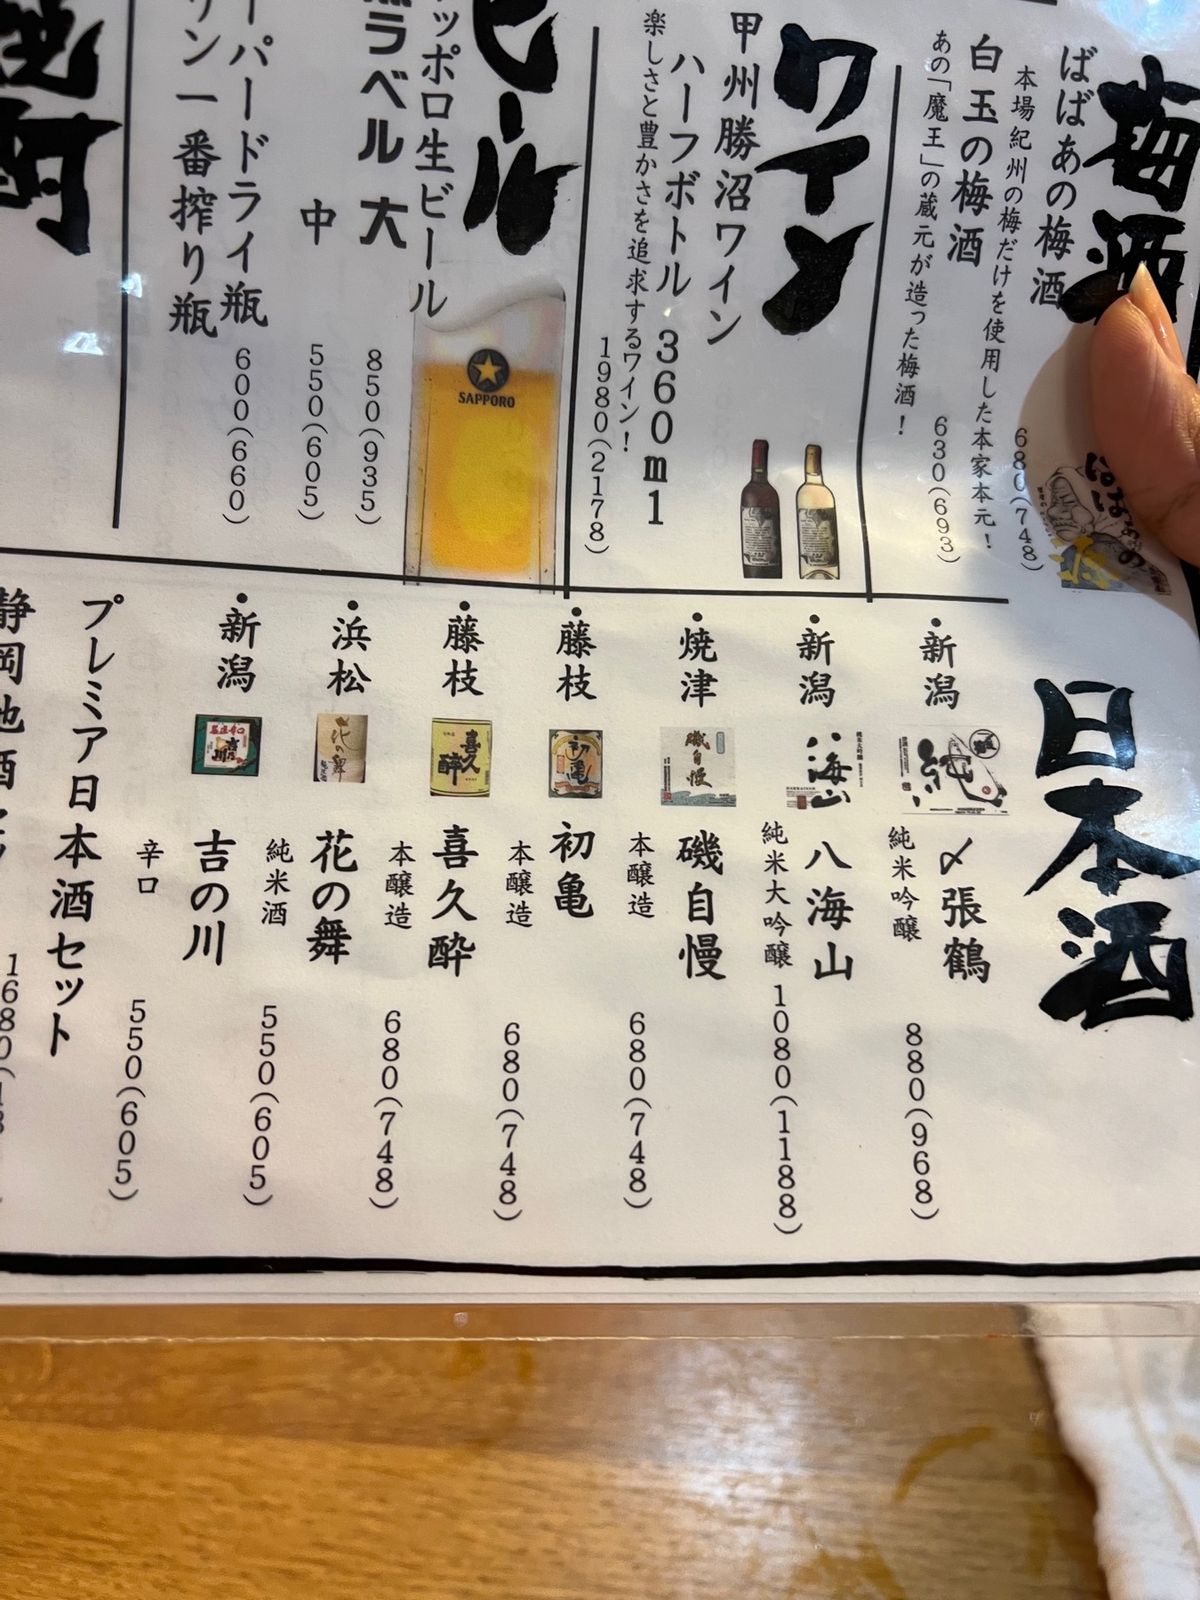 梅酒
ばばあの梅酒
本場紀州の梅だけを使用した本家本元！
680(748)
白玉の梅酒
あの「魔王」の蔵元が造った梅酒！
630(693)
ワイン
甲州勝沼ワイン
ハーフボトル 360ml
楽しさと豊かさを追求するワイン！
1980(2178)
ビール
ッポロ生ビール
ラベル 大
850(935)
中
550(605)
ーパードライ瓶
リン一番搾り瓶
600(660)
SAPPORO
日本酒
・新潟
純
〆張鶴
純米吟醸
880(968)
・新潟
八海山
八海山
純米大吟醸
1080(1188)
・焼津
磯自慢
磯自慢
本醸造
680(748)
・藤枝
初亀
初亀
本醸造
680(748)
・藤枝
喜久酔
喜久酔
本醸造
680(748)
・浜松
花の舞
花の舞
純米酒
550(605)
・新潟
吉乃川
吉の川
辛口
550(605)
プレミア日本酒セット
静岡地酒セッ